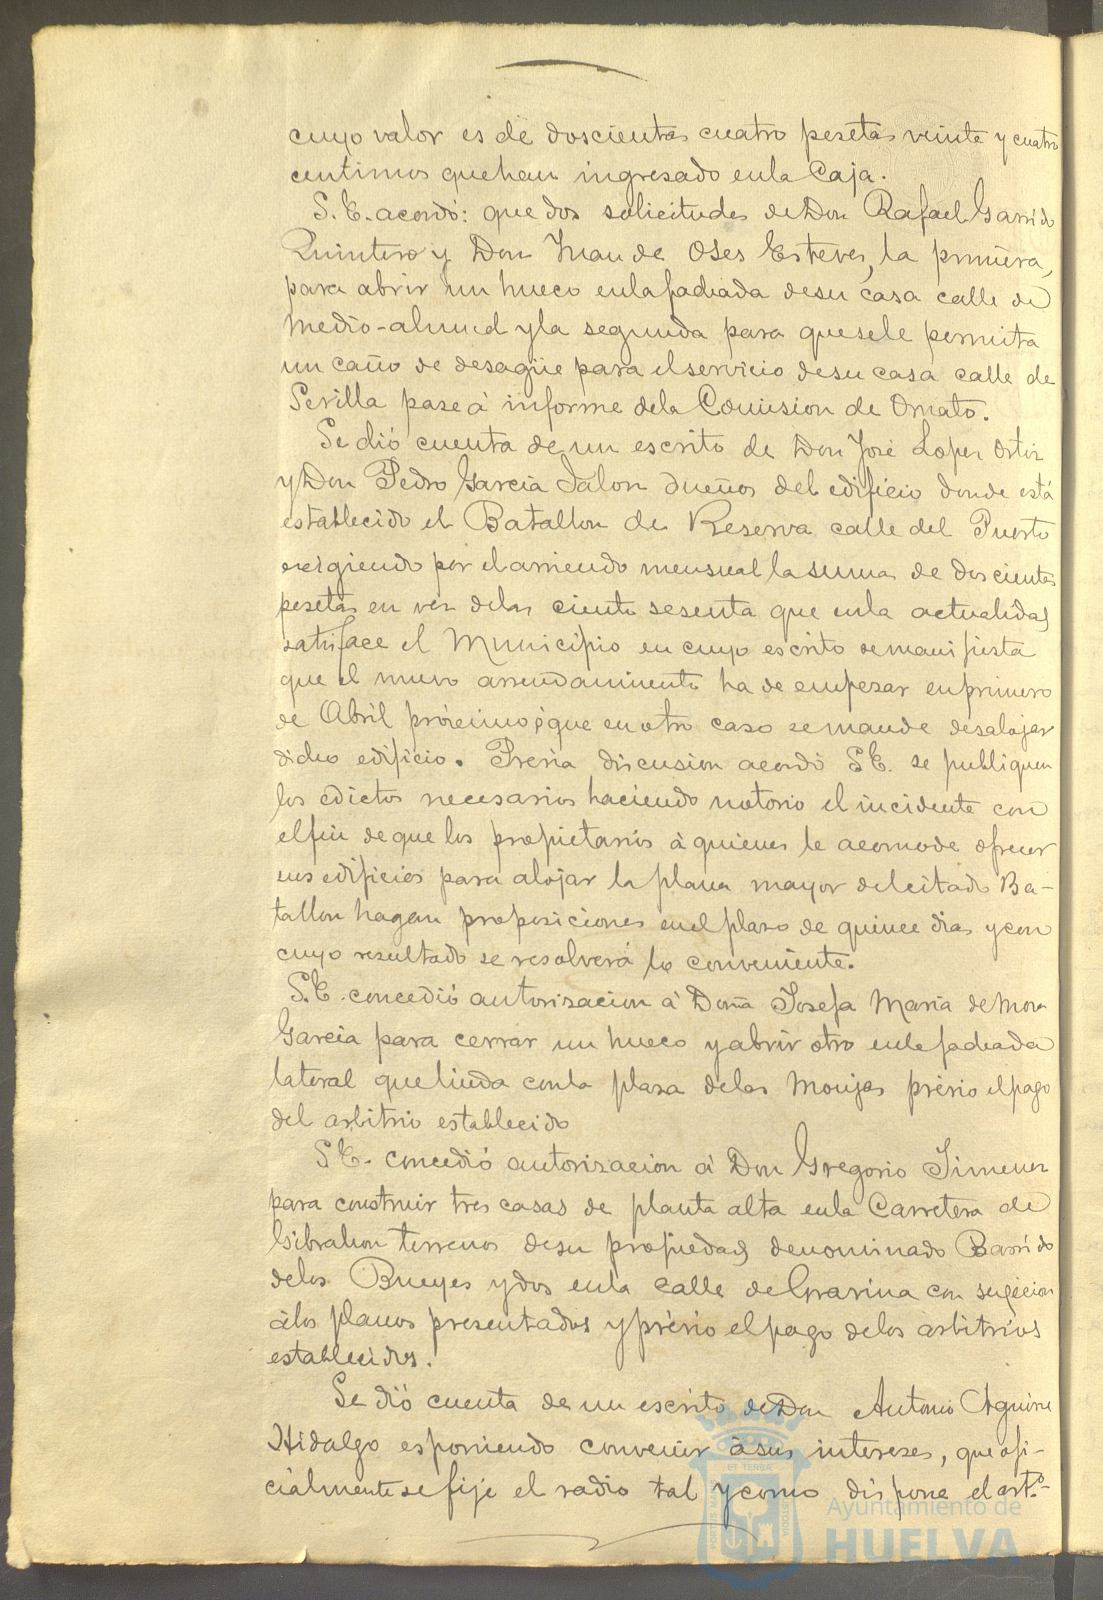 cuyo valor es de doscientas cuatro pesetas veinte y cuatro
centimos que han ingresado en la Caja.
S. E. acordó: que dos solicitudes de Don Rafael Garrido
Quintero y Don Juan de Oses Esteves, la primera,
para abrir un hueco en la fachada de su casa calle de
Medio-almud y la segunda para que se le permita
un caño de desagüe para el servicio de su casa calle de
Sevilla pase á informe de la Comision de Ornato.
Se dió cuenta de un escrito de Don José Lopez Ortiz
y Don Pedro Garcia Jalon dueños del edificio donde está
establecido el Batallon de Reserva calle del Puerto
exigiendo por el arriendo mensual la suma de doscientas
pesetas en vez de las ciento sesenta que en la actualidad
satisface el Municipio en cuyo escrito se manifiesta
que el nuevo arrendamiento ha de empezar en primero
de Abril próximo y que en otro caso se mande desalojar
dicho edificio. Previa discusion acordó S.E. se publiquen
los edictos necesarios haciendo notorio el incidente con
el fin de que los propietarios á quienes le acomode ofrecer
sus edificios para alojar la plana mayor del citado Ba-
tallon hagan proposiciones en el plazo de quince dias y con
cuyo resultado se resolverá lo conveniente.
S.E. concedió autorizacion á Doña Josefa Maria de Mora
Garcia para cerrar un hueco y abrir otro en la fachada
lateral que linda con la plaza de las Monjas prévio el pago
del arbitrio establecido
S.E. concedió autorizacion á Don Gregorio Jimenez
para construir tres casas de planta alta en la Carretera de
Gibraleon terrenos de su propiedad denominado Barrido
de los Bueyes y dos en la calle de Gravina con sugecion
á los planos presentados y prévio el pago de los arbitrios
establecidos.
Se dió cuenta de un escrito de Don Antonio Aguirre
Hidalgo esponiendo convenir á sus intereses, que ofi-
cialmente se fije el radio tal y como dispone el art.º
Ayuntamiento de
HUELVA